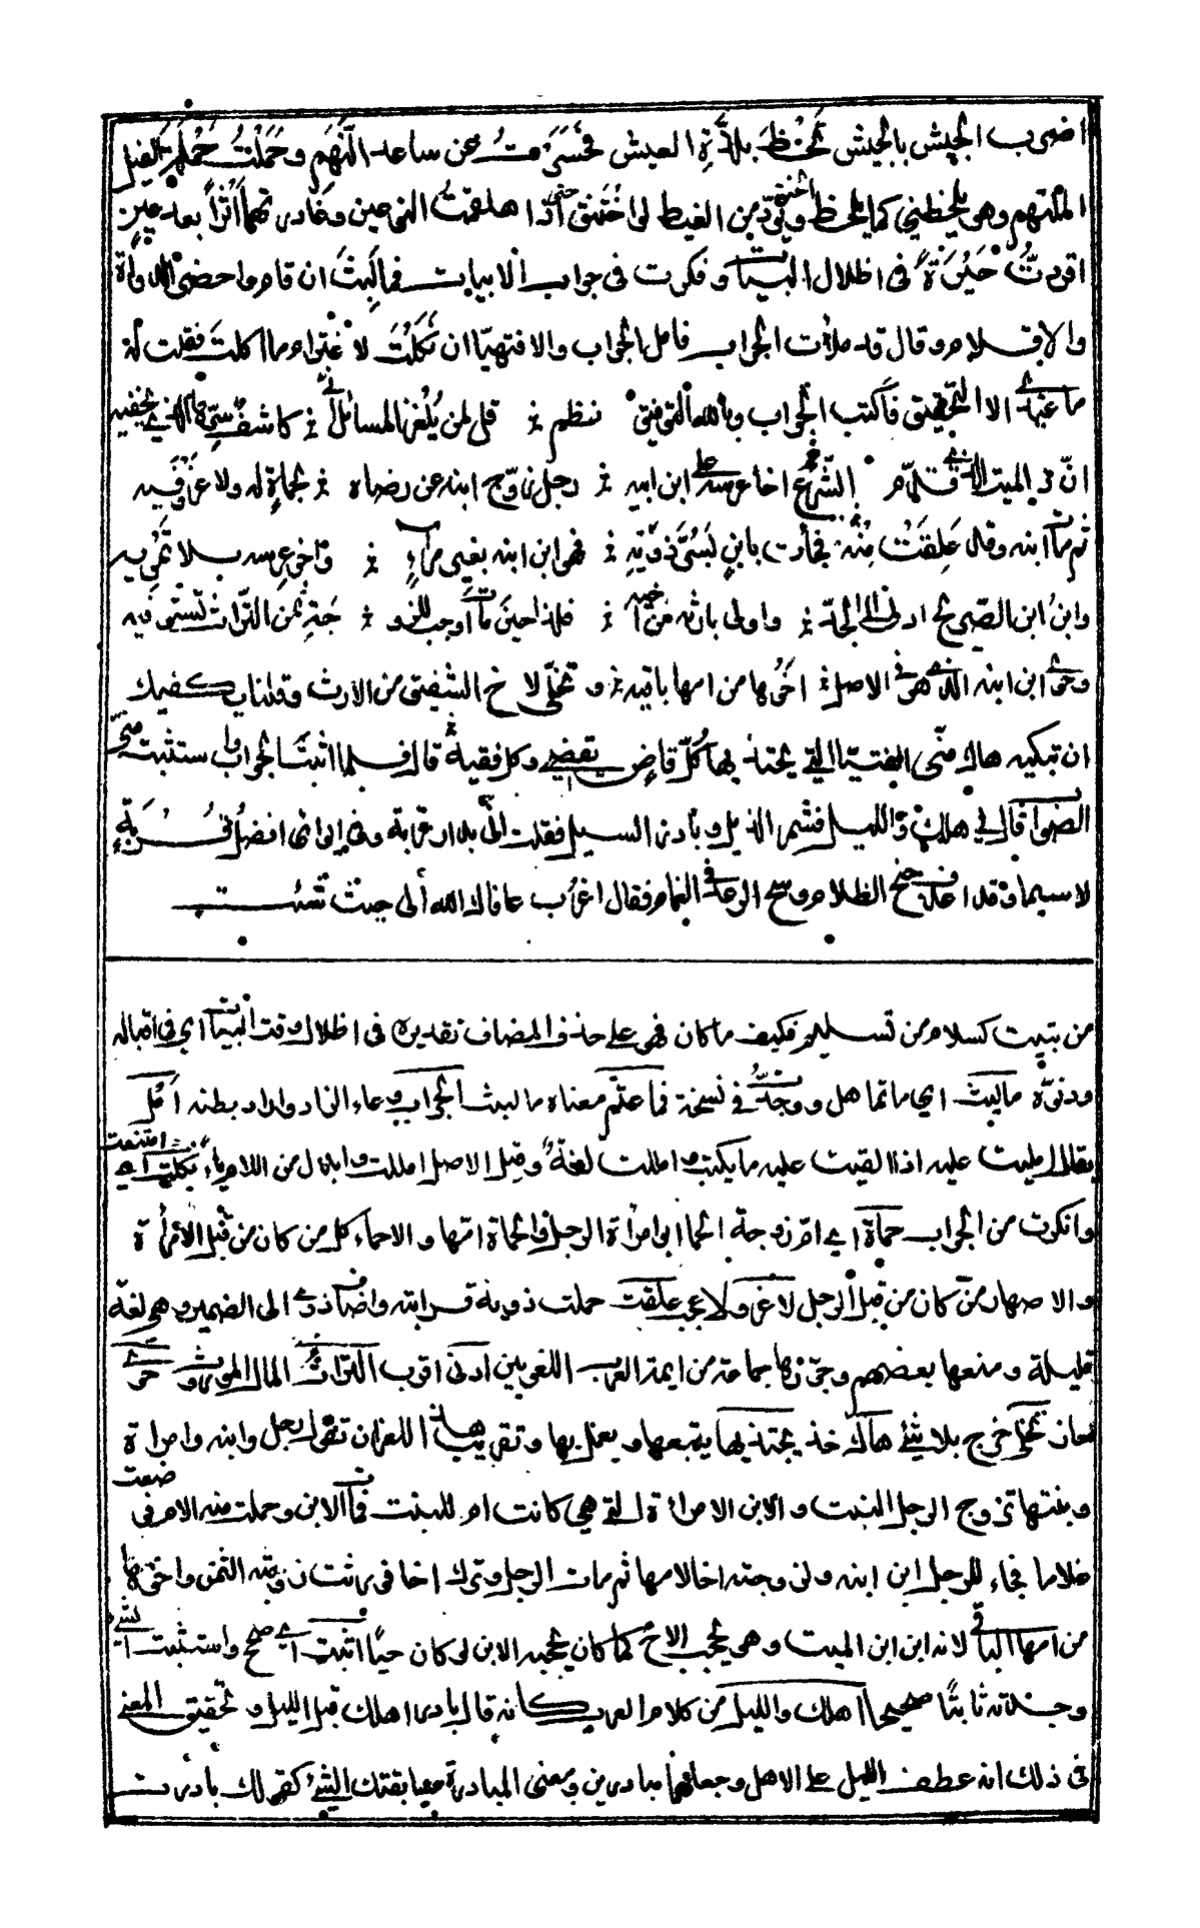 اضرب الجيش بالجيش تحظ بلذة العيش فحسرت عن ساعد النهم وحملت حملة الفيل
الملتهم وهو يلحظني كما يلحظ الحنق ويود من الغيظ لو أختنق حتى اذا هلقمت النوعين وغادرتهما أثرا بعد عين
اقردت حيرة في اظلال البيات وفكرت في جواب الابيات فما لبث ان قام واحضر الدواة
والاقلام وقال قد ملأت الجراب فامل الجواب والا فتهيأ ان نكلت لاغترام ما اكلت فقلت له
ما عندي الا التحقيق فاكتب الجواب وبالله التوفيق نظم قل لمن يلغز المسائل اني كاشف سرها الذي تخفيه
ان ذا الميت الذي قدم الشرع اخا عرسه على ابن ابيه رجل زوج ابنه عن رضاه بحماة له ولا غرو فيه
ثم مات ابنه وقد علقت منه فجاءت بابن يسر ذويه فهو ابن ابنه بغير مراء واخو عرسه بلا تمويه
وابن ابن الصريح ادنى الى الجد واولى بارثه من اخيه فلذا حين مات اوجب للزوجة ثمن التراث تستوفيه
وحوى ابن ابنه الذي هو في الاصل اخوها من امها باقيه وتخلى الاخ الشقيق من الارث وقلنا يكفيك
ان تبكيه هاك مني الفتيا التي يحتذيها كل قاض يقضي وكل فقيه قال فلما اثبت الجواب واستثبت مني
الصواب قال لي اهلك والليل فشمر الذيل وبادر السيل فقلت اني بدار غربة وفي إيوائي افضل قربة
لا سيما وقد اغدف جنح الظلام وسبح الرعد في الغمام فقال اغرب عافاك الله الى حيث شئت
من بتيت كسلام من تسليم وكيف ما كان فهو على حذف المضاف تقديره في اظلال وقت البيات اي في اقباله
ودنوه ما لبث اي ما تماهل ووجدت في نسخة فما عتم معناه ما لبث الجراب وعاء الزاد واراد بطنه أمل
يقال امليت عليه اذا القيت عليه ما يكتب وامللت لغة وقيل الاصل امللت وابدل من اللام ياء نكلت اي امتنعت
وانكرت من الجواب حماة اي ام زوجة الحما ابو امرأة الرجل والحماة امها والاحماء كل من كان من قبل الامرأة
والاصهار من كان من قبل الرجل لا غرو لا عجب علقت حملت ذويه قرابته واضاف ذوي الى الضمير وهي لغة
قليلة ومنعها بعضهم وجوزها جماعة من ايمة العرب اللغويين ادنى اقرب التراث المال الموروث حوى
حاز تخلى خرج بلا شيئ هاك خذ يحتذيها يتبعها ويعمل بها وتقريب هذا اللغز ان تقول رجل وابنه وامراة
وبنتها تزوج الرجل البنت والابن الامرأة التي هي كانت ام للبنت فمات الابن وحملت منه الام فوضعت
غلاما فجاء للرجل ابن ابنه ولزوجته اخا لامها ثم مات الرجل وترك اخا فورثت زوجته الثمن واخوها
من امها الباقي لانه ابن ابن الميت وهو يحجب الاخ كما كان يحجبه الابن لو كان حيا اثبت اي صحح واستثبت الشيئ
وجدته ثابتا صحيحا اهلك والليل من كلام العرب كانه قال بادر اهلك قبل الليل وتحقيق المعنى
في ذلك انه عطف الليل على الاهل وجعلهما مبادرين ومعنى المبادرة مسابقتك الشيئ كقولك بادرت